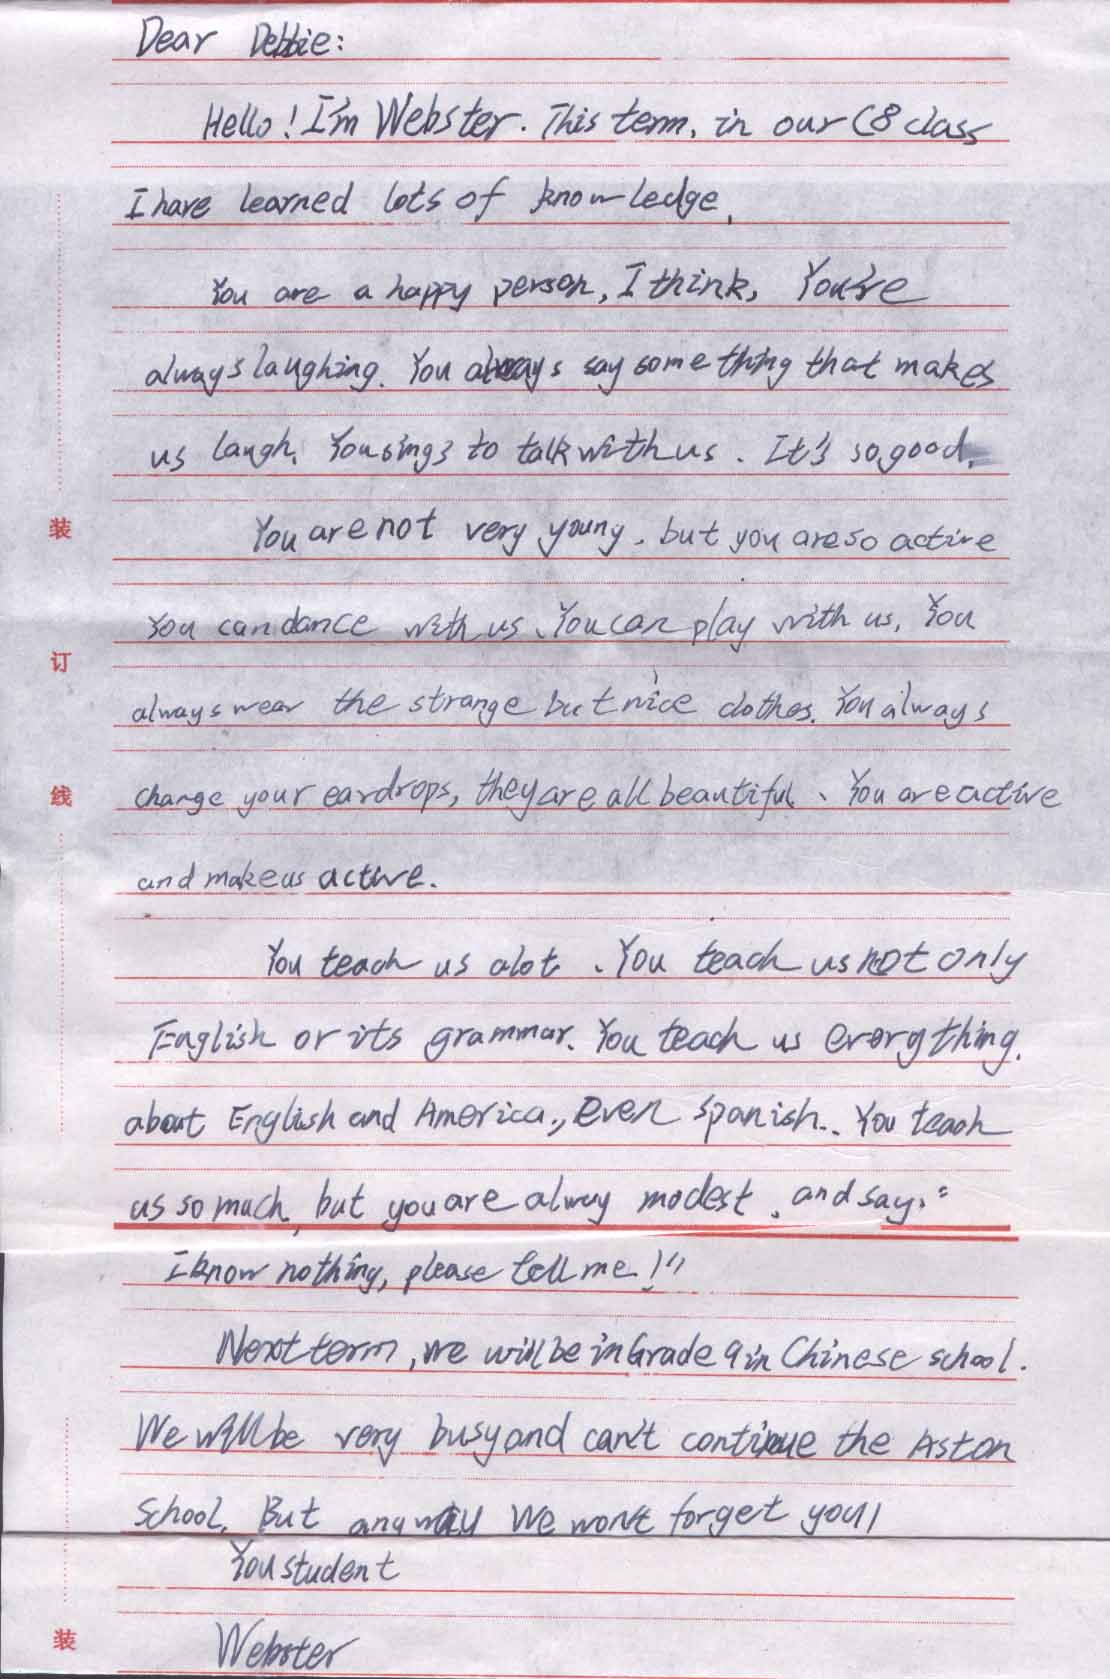 Dear Debbie:
Hello! I'm Webster. This term, in our C8 class
I have learned lots of knowledge.
You are a happy person, I think, You're
always laughing. You always say something that makes
us laugh. You sings to talk with us. It's so good.
You are not very young, but you are so active
You can dance with us. You can play with us, You
always wear the strange but nice clothes. You always
change your eardrops, they are all beautiful. You are active
and make us active.
You teach us alot. You teach us not only
English or its grammar. You teach us everything.
about English and America., even spanish.. You teach
us so much, but you are alway modest, and say: "
I know nothing, please tell me!"
Next term, we will be in Grade 9 in Chinese school.
We will be very busy and can't continue the Aston
School. But anyway We won't forget you!
You student
Webster
装
订
线
装